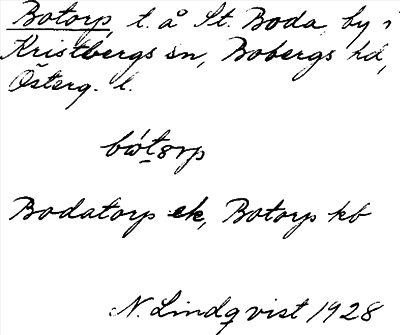 Botorp, t. å St. Boda, by i
Kristbergs sn, Bobergs hd,
Österg. l.
bótorp
Bodatorp ek, Botorp kb
N. Lindqvist 1928